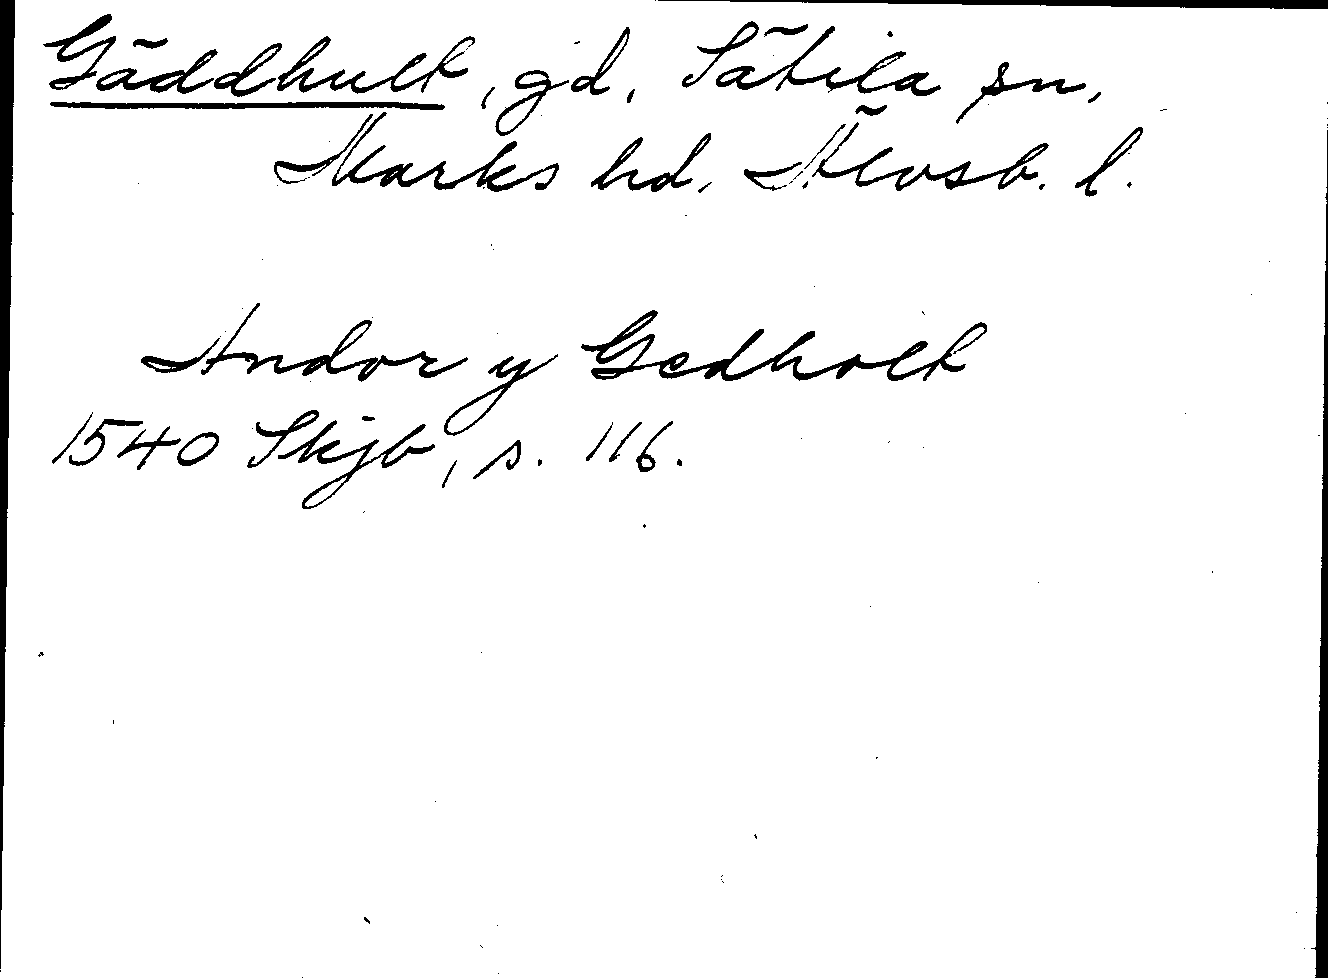 Gäddhult, gd, Sätila sn,
Marks hd, Älvsb. l.
Andor y Gedholt
1540 Skjb, s. 116.